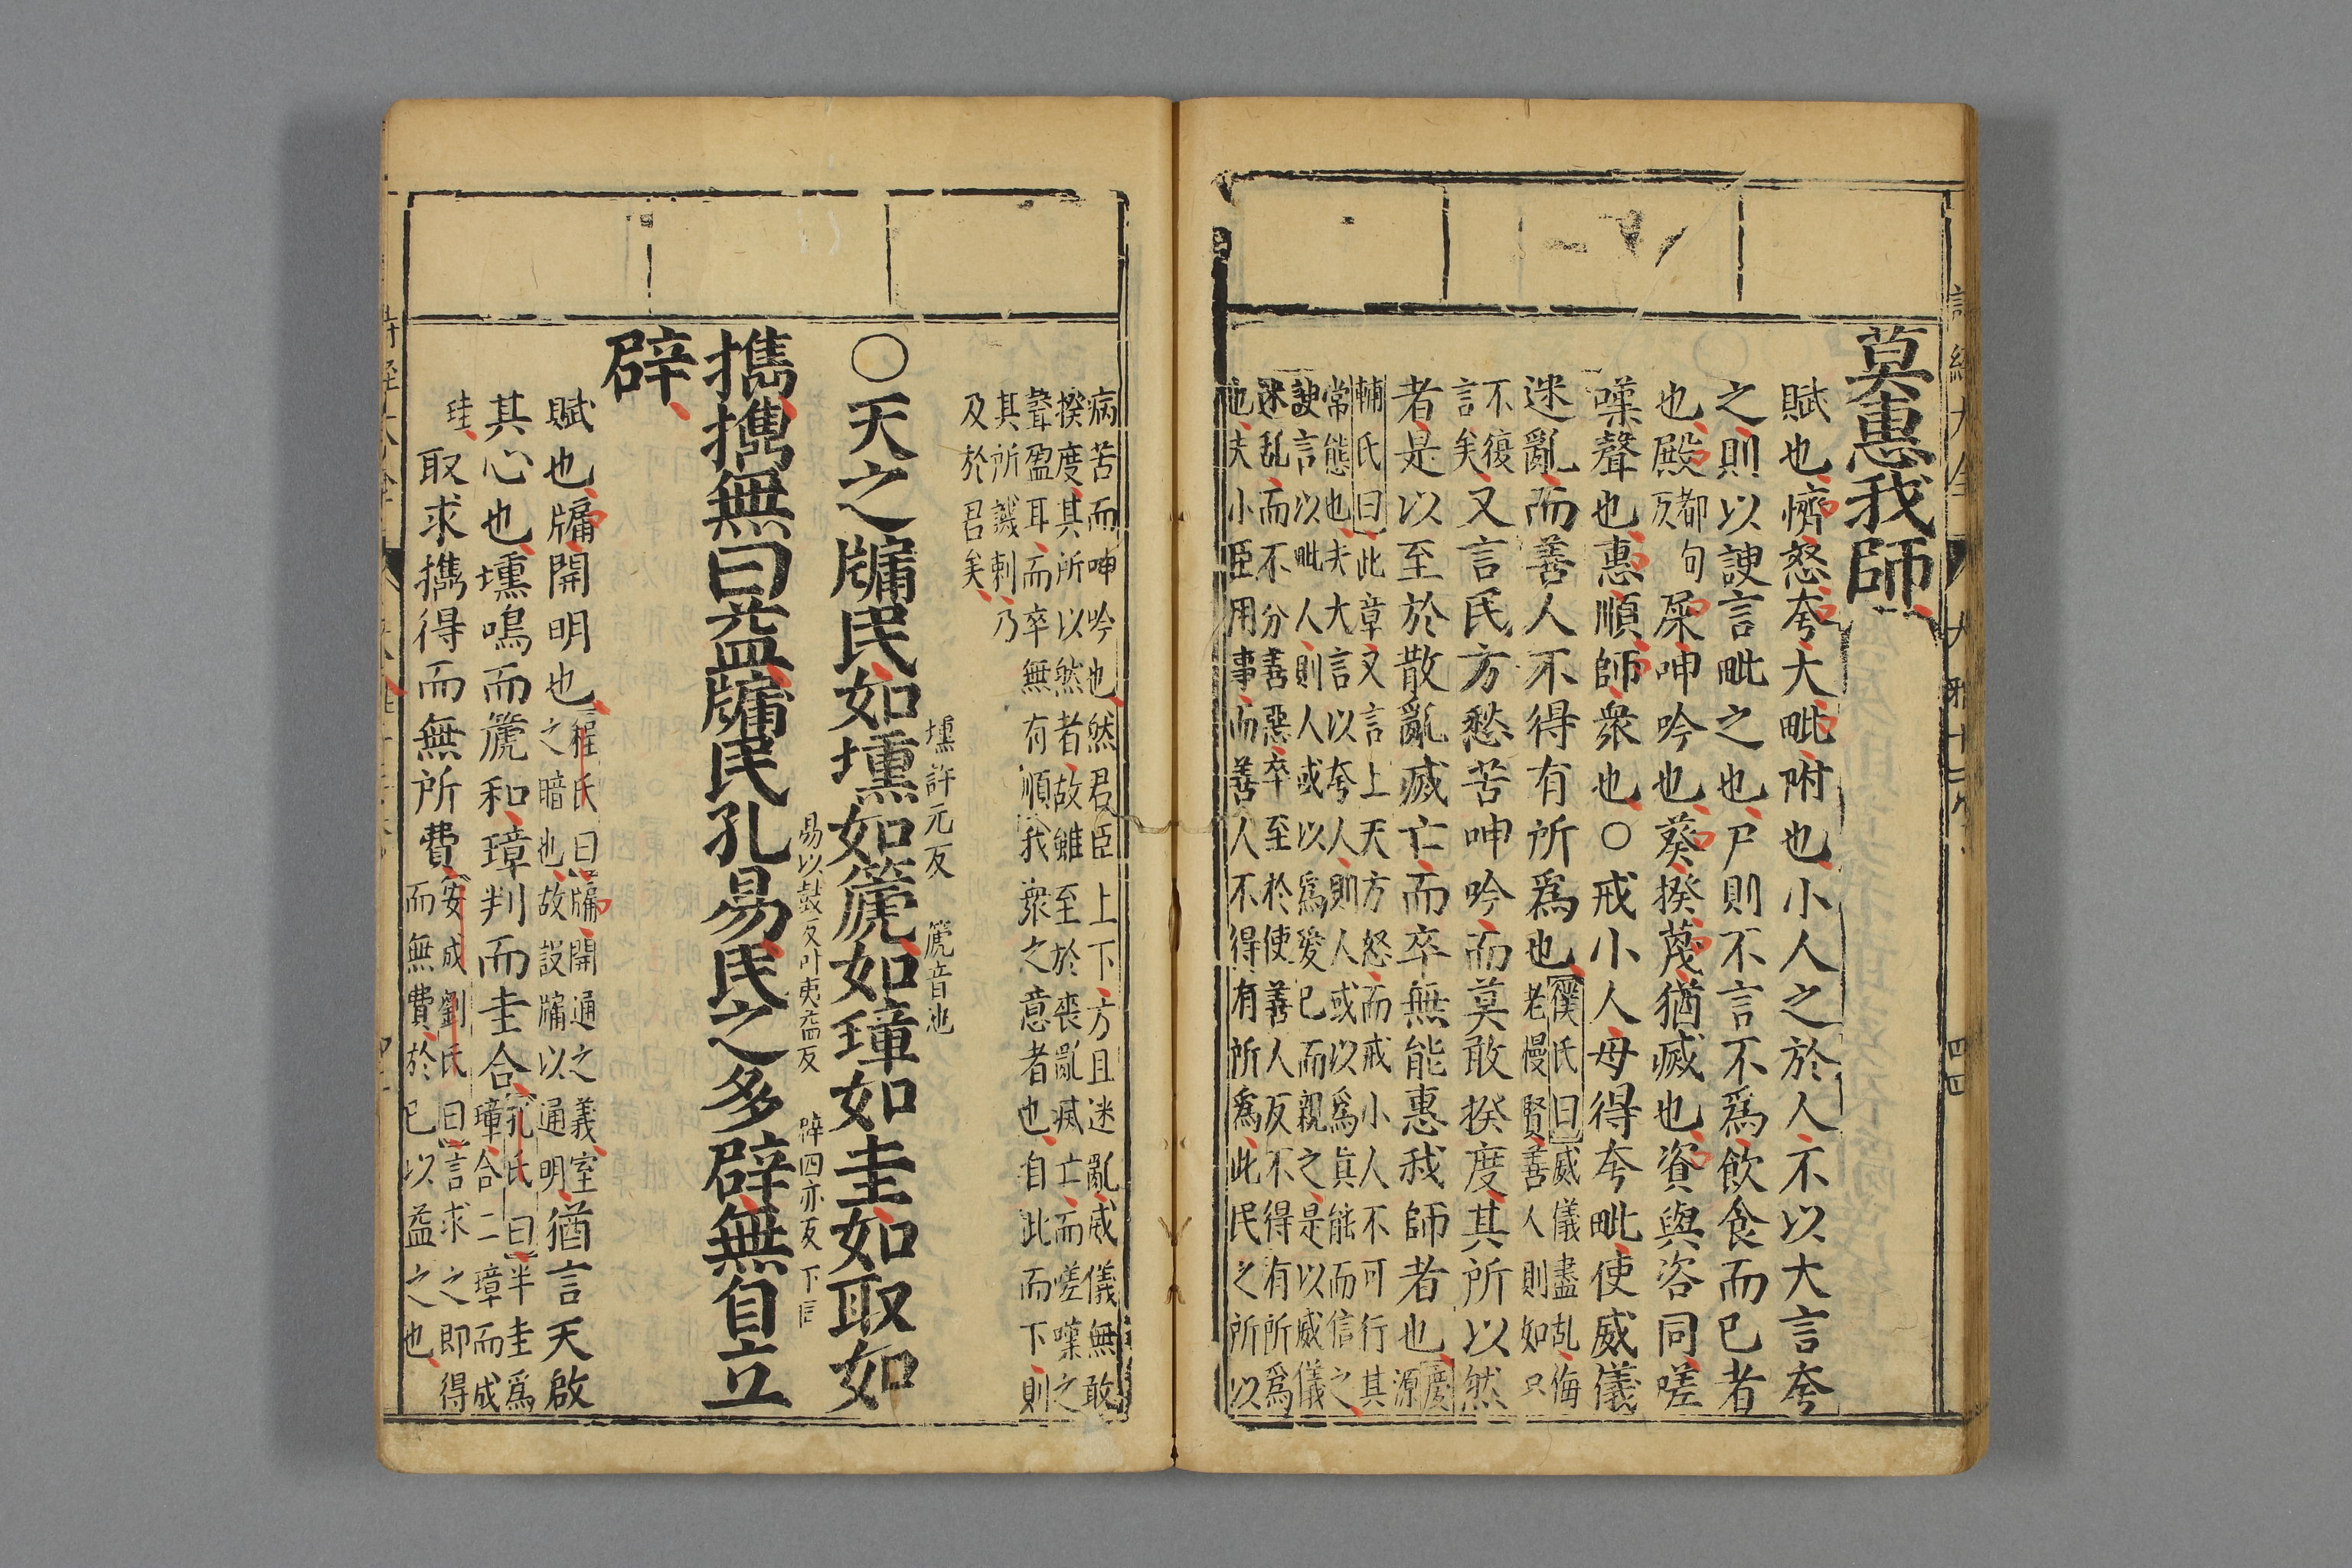 詩經大全 大雅十七 四四
莫惠我師
賦也懠怒夸大毗附也小人之於人不以大言夸
之則以諛言毗之也尸則不言不爲飲食而已者
也殿都句反屎呻吟也葵揆蔑猶滅也資與咨同嗟
嘆聲也惠順師衆也○戒小人毋得夸毗使威儀
迷亂而善人不得有所爲也濮氏曰威儀盡乱侮老慢賢善人則如只
不復言矣又言民方愁苦呻吟而莫敢揆度其所以然
者是以至於散亂滅亡而卒無能惠我師者也慶源
輔氏曰此章又言上天方怒而戒小人不可行其
常態也夫大言以夸人則人或以爲眞能而信之
諛言以毗人則人或以爲愛已而親之是以威儀
迷乱而不分善惡卒至於使善人反不得有所爲
也夫小臣用事而善人不得有所爲此民之所以
病苦而呻吟也然君臣上下方且迷亂威儀無敢
揆度其所以然者故雖至於喪亂烕亡而嗟嘆之
聲盈耳而卒無有順我衆之意者也自此而下則
其所譏刺乃
及於君矣
壎許元反 篪音池
○天之牖民如壎如篪如璋如圭如取如
易以豉反叶夷益反 辟四亦反下同
攜攜無曰益牖民孔易民之多辟無自立
辟
賦也牖開明也程氏曰牖開通之義室之暗也故設牖以通明猶言天啟
其心也壎鳴而篪和璋判而圭合孔氏曰半圭爲璋合二璋而成
圭取求攜得而無所費安成劉氏曰言求之即得而無費於已以益之也